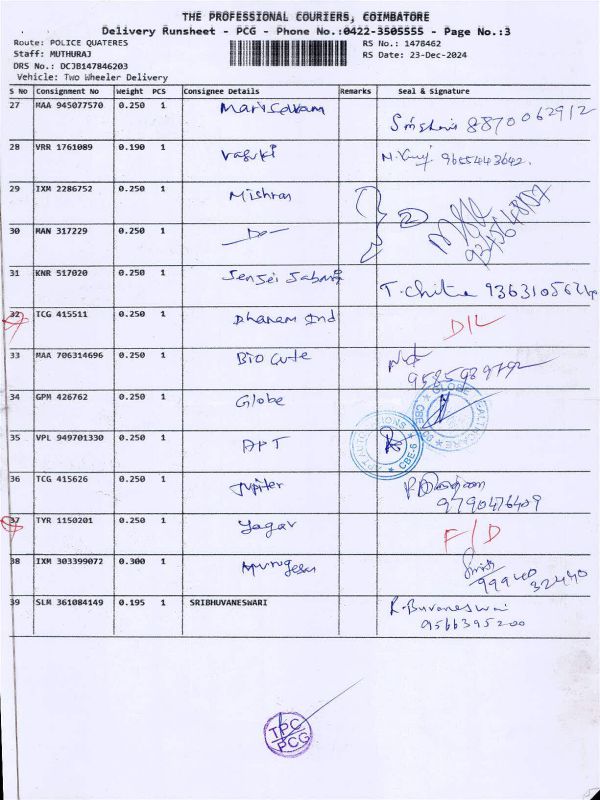 THE PROFESSIONAL COURIERS, COIMBATORE
Delivery Runsheet - PCG - Phone No.:0422-3505555 - Page No.:3
Route: POLICE QUATERES RS No.: 1478462
Staff: MUTHURAJ RS Date: 23-Dec-2024
DRS No.: DCJB147846203
Vehicle: Two Wheeler Delivery
S No Consignment No Weight PCS Consignee Details Remarks Seal & Signature
27 MAA 945077570 0.250 1 8870062912
28 VRR 1761089 0.190 1 Vasuki 9655443642.
29 IXM 2286752 0.250 1 Mishran 2
30 MAN 317229 0.250 1 -Do-
31 KNR 517020 0.250 1 Sensei T. Chitra
32 TCG 415511 0.250 1 Dhanam Ind D/L
33 MAA 706314696 0.250 1 Bio Cute
34 GPM 426762 0.250 1 Globe GLOBE
35 VPL 949701330 0.250 1 APT CBE-6
36 TCG 415626 0.250 1 Jupiter 9790476409
37 TYR 1150201 0.250 1 F/D
38 IXM 303399072 0.300 1 Murugesan 99940 32440
39 SLM 361084149 0.195 1 SRIBHUVANESWARI R. Buvaneswari
9566395200
TPC
PCG